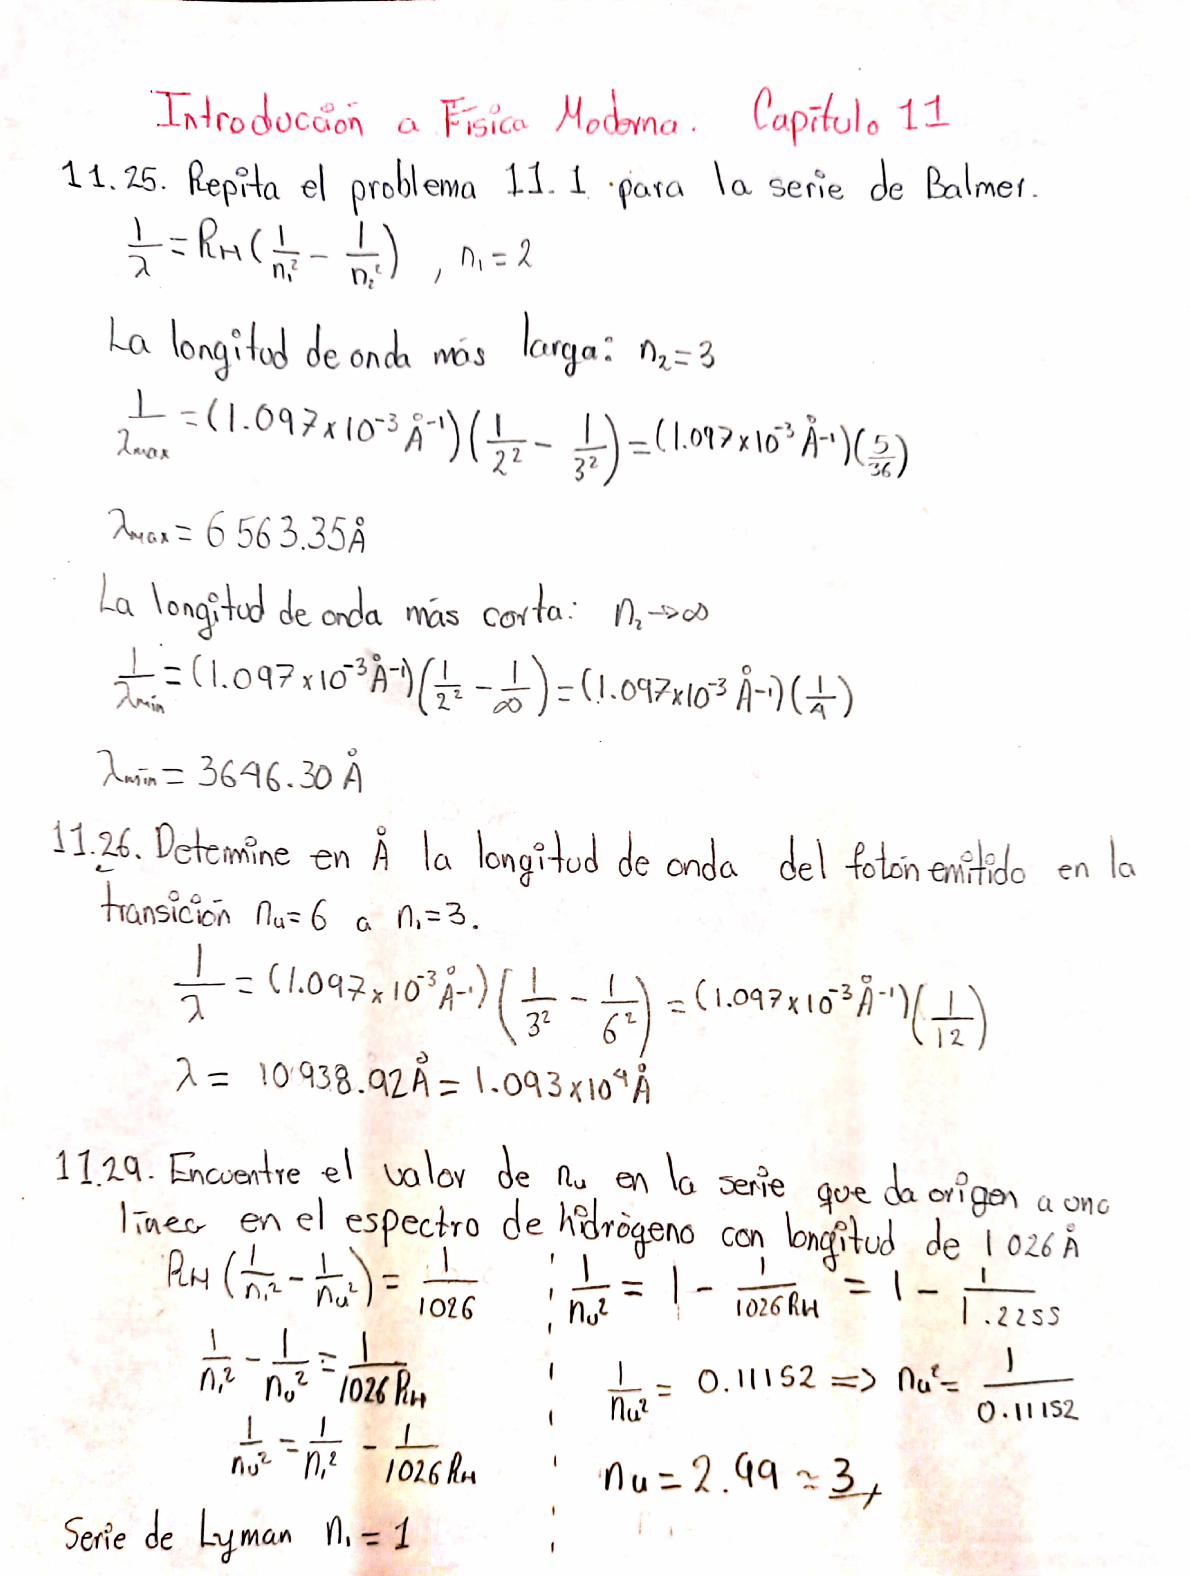 Introducción a Física Moderna. Capítulo 11
11.25. Repita el problema 11.1 para la serie de Balmer.
1/λ = RH (1/n₁² − 1/n₂²) , n₁ = 2
La longitud de onda más larga: n₂=3
1/λmax = (1.097x10⁻³ Å⁻¹)(1/2² − 1/3²) = (1.097x10⁻³ Å⁻¹)(5/36)
λmax = 6563.35Å
La longitud de onda más corta: n₂→∞
1/λmin = (1.097x10⁻³Å⁻¹)(1/2² − 1/∞) = (1.097x10⁻³ Å⁻¹)(1/4)
λmin = 3646.30 Å
11.26. Determine en Å la longitud de onda del fotón emitido en la
transición nu=6 a n₁=3.
1/λ = (1.097x10⁻³Å⁻¹)(1/3² − 1/6²) = (1.097x10⁻³Å⁻¹)(1/12)
λ = 10938.92Å = 1.093x10⁴Å
11.29. Encuentre el valor de nu en la serie que da origen a una
línea en el espectro de hidrógeno con longitud de 1026Å
RH (1/n₁² − 1/nu²) = 1/1026
1/n₁² − 1/nu² = 1/1026 RH
1/nu² = 1/n₁² − 1/1026 RH
Serie de Lyman n₁ = 1
1/nu² = 1 − 1/1026RH = 1 − 1/1.2255
1/nu² = 0.11152 => nu² = 1/0.11152
nu = 2.99 ≈ 3